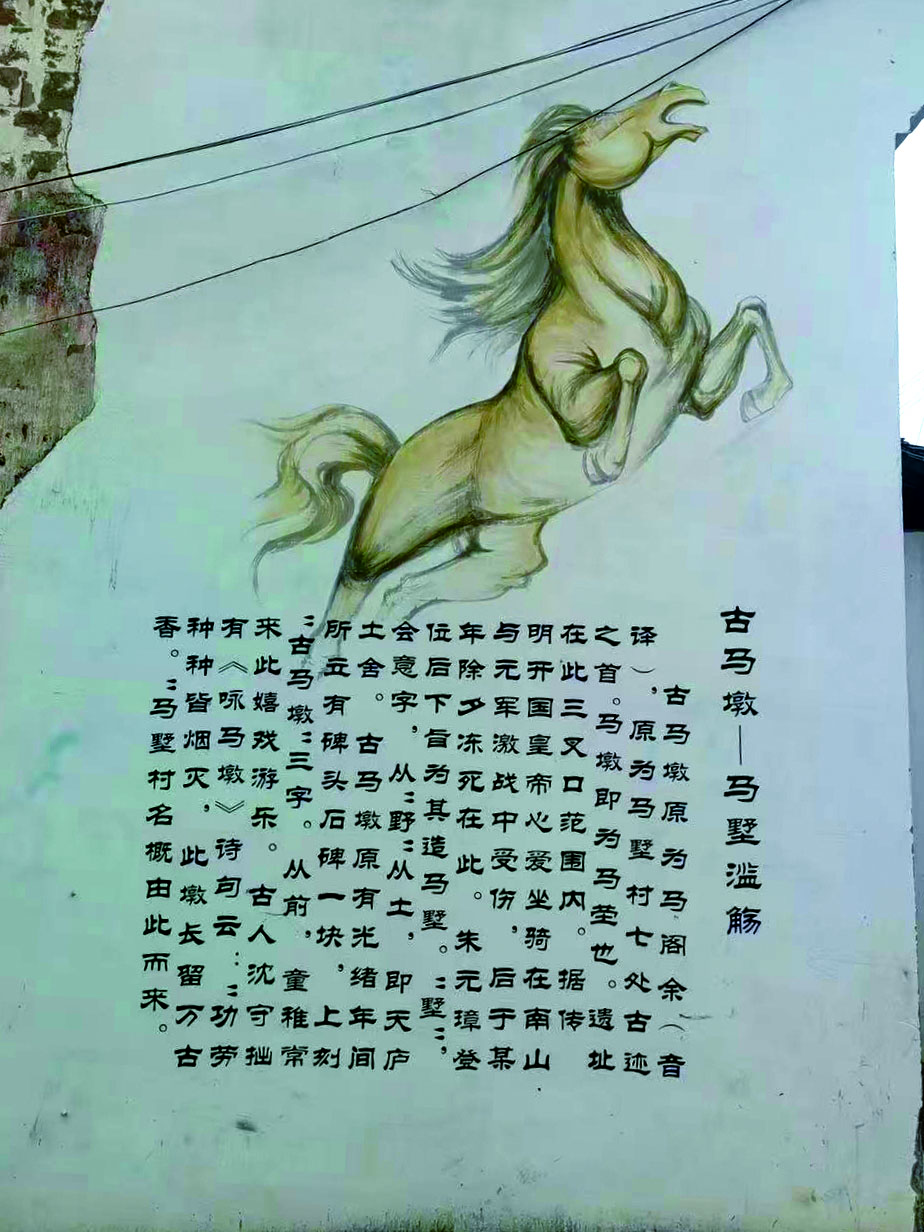 古马墩——马墅滥觞
古马墩原为马阁余（音
译），原为马墅村七处古迹
之首。马墩即为马茔也。遗址
在此三叉口范围内。据传
明开国皇帝心爱坐骑在南山
与元军激战中受伤，后于某
年除夕冻死在此。朱元璋登
位后下旨为其造马墅。“墅”，
会意字，从“野”从土，即天庐
土舍。古马墩原有光绪年间
所立有碑头石碑一块，上刻
“古马墩”三字。从前，童稚常
来此嬉戏游乐。古人沈守拙
有《咏马墩》诗句云：“功劳
种种皆烟灭，此墩长留万古
香。”马墅村名概由此而来。